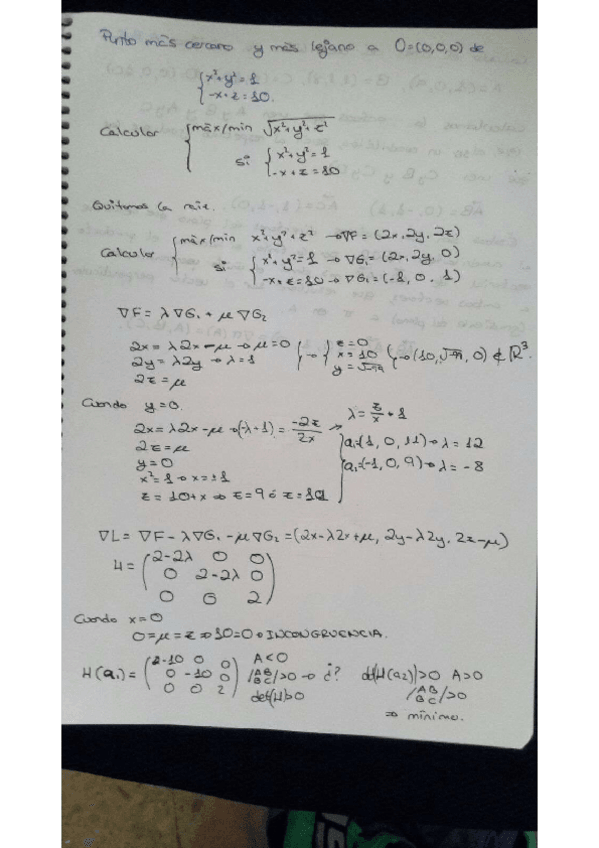 Punto más cercano y más lejano a O=(0,0,0) de
{x²+y²=1
-x+z=10.
Calcular {máx/min √x²+y²+z²
si {x²+y²=1
-x+z=10
Quitamos la raíz.
Calcular {máx/min x²+y²+z² → ∇F=(2x,2y,2z)
si {x²+y²=1 → ∇G₁=(2x,2y,0)
-x+z=10 → ∇G₂=(-1,0,1)
∇F=λ∇G₁+μ∇G₂
2x=λ2x-μ → μ=0
2y=λ2y → λ=1
2z=μ
} → {z=0
x=10
y=√-99 } → (10,√-99,0) ∉ ℝ³.
Cuando y=0.
2x=λ2x-μ → (-λ+1)=-2z/2x → λ=z/x+1
2z=μ
y=0
x²=1 → x=±1
z=10+x ⇒ z=9 ó z=11
a₁=(1,0,11) → λ=12
a₂=(-1,0,9) → λ=-8
∇L=∇F-λ∇G₁-μ∇G₂=(2x-λ2x+μ, 2y-λ2y, 2z-μ)
H=(2-2λ 0 0
0 2-2λ 0
0 0 2)
Cuando x=0
0=μ=z ⇒ 10=0 → INCONGRUENCIA.
H(a₁)=(2-10 0 0
0 -10 0
0 0 2)
A<0
|AB BC|>0 → ¿?
det(H)>0
det(H(a₂))>0 A>0
|AB BC|>0
⇒ mínimo.